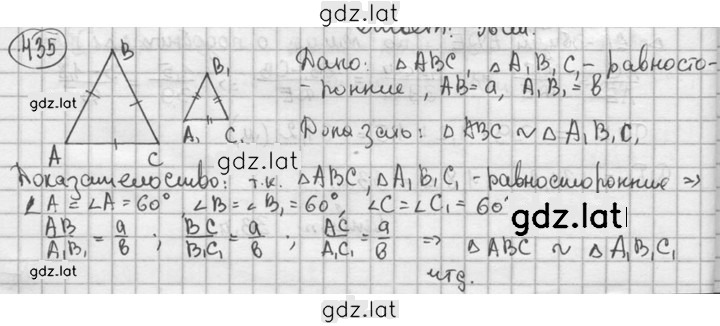 gdz.lat
435
B
B₁
A
C
A₁
C₁
gdz.lat
gdz.lat
Дано: △ ABC, △ A₁B₁C₁ - равносто-
-ронние, AB = a, A₁B₁ = в
Доказать: △ ABC ~ △ A₁B₁C₁
Доказательство: т.к. △ABC, △A₁B₁C₁ - равносторонние ⇒
∠A = ∠A = 60° ∠B = ∠B₁ = 60°, ∠C = ∠C₁ = 60°
AB/A₁B₁ = a/в ; BC/B₁C₁ = a/в ; AC/A₁C₁ = a/в ⇒ △ ABC ~ △ A₁B₁C₁
чтд.
gdz.lat
gdz.lat
gdz.lat